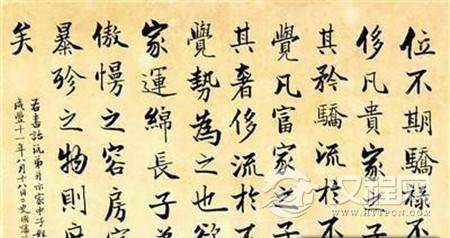 位不期驕祿不
侈凡貴家之子
其矜驕流於不
覺凡富家之子
其奢侈流於不
覺勢為之也欲
家運綿長子弟
傲慢之容房室
暴殄之物則庶
矣
弟
家中子
咸豐十一年八月十八日
國藩
汉程网
HTTPCN.COM